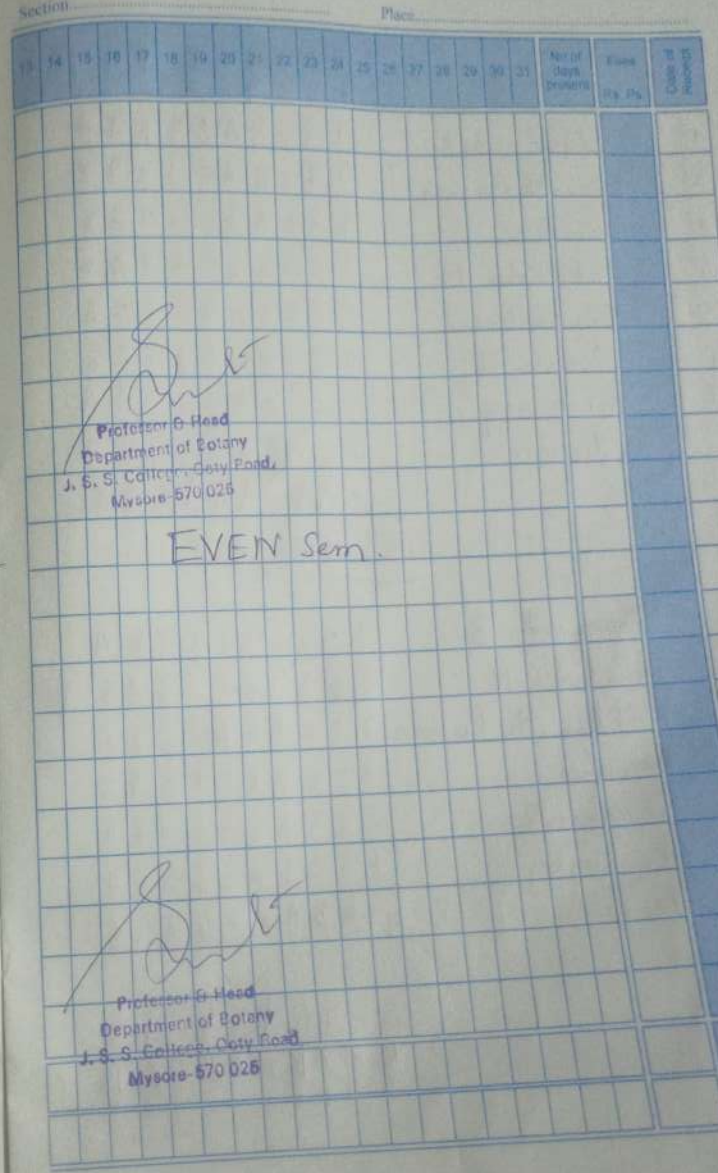 Section
Place
13 14 15 16 17 18 19 20 21 22 23 24 25 26 27 28 29 30 31 No of days present Fees Rs. Ps. Date of Receipt
Professor & Head
Department of Botany
J. S. S. College, Ooty Road,
Mysore-570 025
EVEN Sem.
Professor & Head
Department of Botany
J. S. S. College, Ooty Road
Mysore-570 025